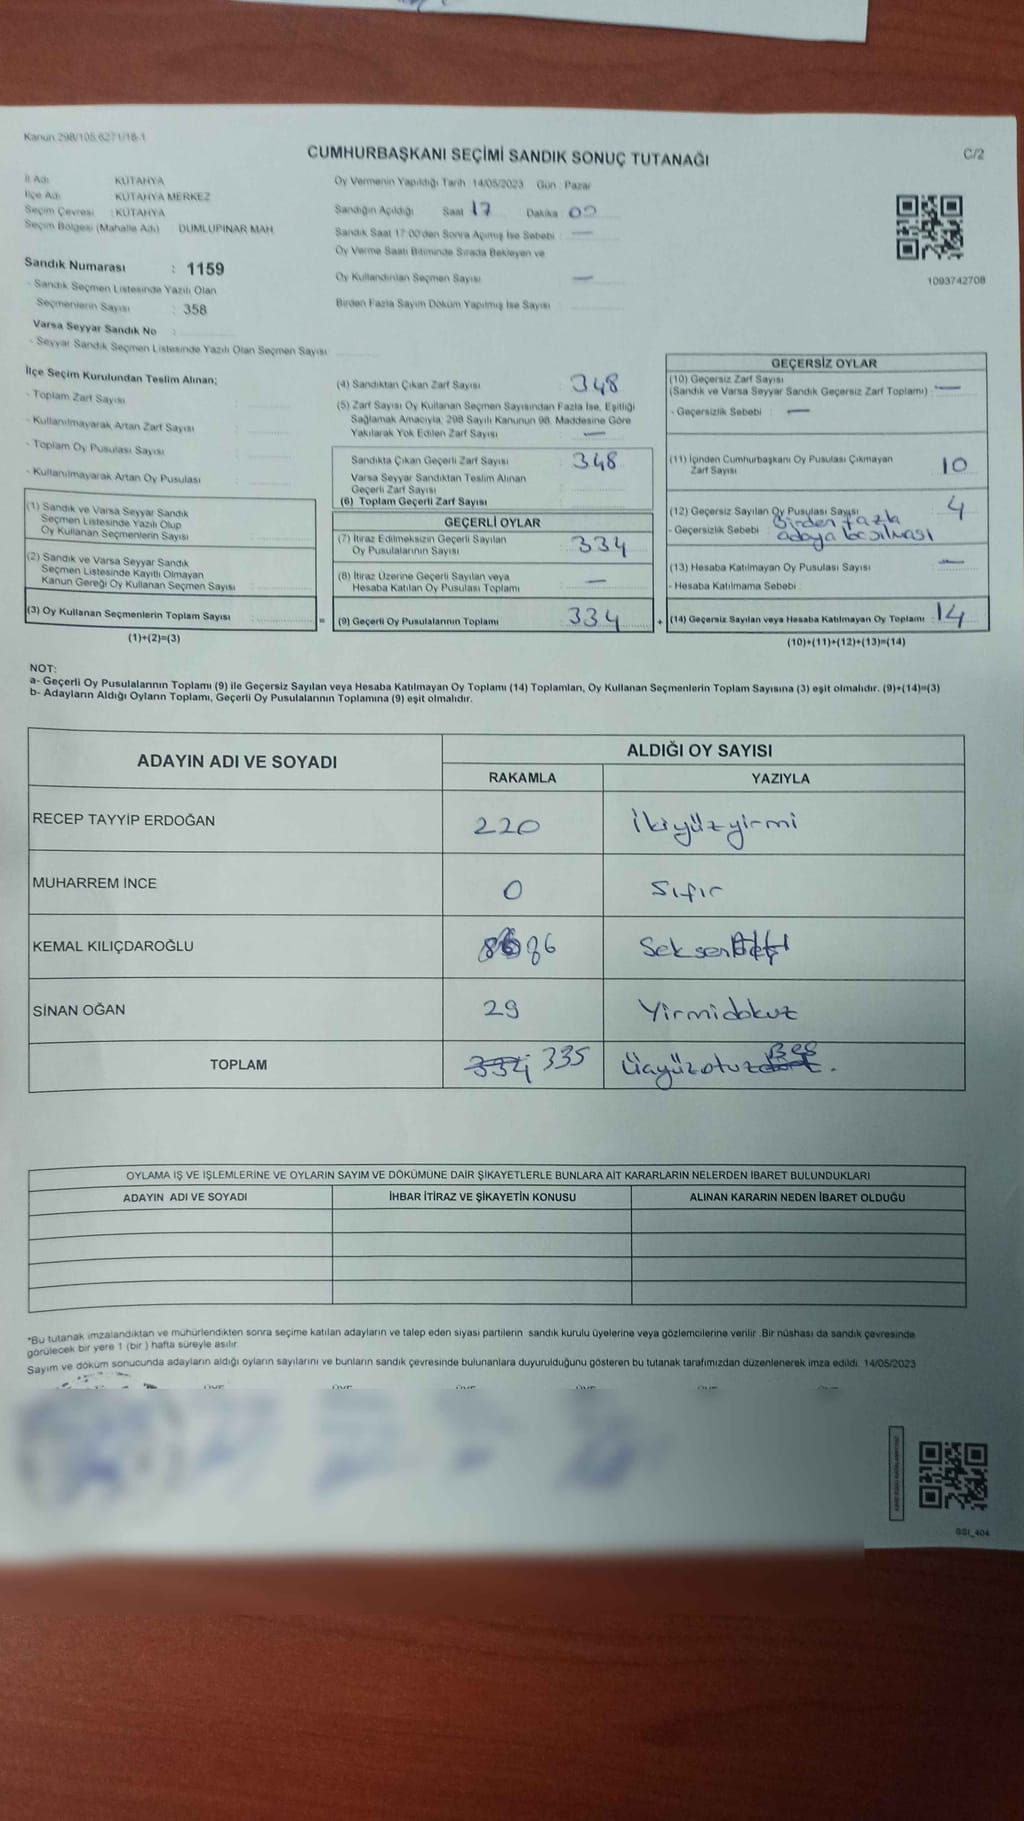 Kanun:298/105,6271/18-1
CUMHURBAŞKANI SEÇİMİ SANDIK SONUÇ TUTANAĞI
C/2
İl Adı : KÜTAHYA
İlçe Adı : KÜTAHYA MERKEZ
Seçim Çevresi : KÜTAHYA
Seçim Bölgesi (Mahalle Adı) : DUMLUPINAR MAH.
Sandık Numarası : 1159
- Sandık Seçmen Listesinde Yazılı Olan
Seçmenlerin Sayısı : 358
Varsa Seyyar Sandık No :
- Seyyar Sandık Seçmen Listesinde Yazılı Olan Seçmen Sayısı
Oy Vermenin Yapıldığı Tarih 14/05/2023 Gün : Pazar
Sandığın Açıldığı Saat 17 Dakika 00
Sandık Saat 17:00'den Sonra Açılmış İse Sebebi : —
Oy Verme Saati Bitiminde Sırada Bekleyen ve
Oy Kullandırılan Seçmen Sayısı —
Birden Fazla Sayım Döküm Yapılmış İse Sayısı
1093742708
İlçe Seçim Kurulundan Teslim Alınan;
- Toplam Zarf Sayısı :
- Kullanılmayarak Artan Zarf Sayısı :
- Toplam Oy Pusulası Sayısı :
- Kullanılmayarak Artan Oy Pusulası :
(1) Sandık ve Varsa Seyyar Sandık
Seçmen Listesinde Yazılı Olup
Oy Kullanan Seçmenlerin Sayısı :
(2) Sandık ve Varsa Seyyar Sandık
Seçmen Listesinde Kayıtlı Olmayan
Kanun Gereği Oy Kullanan Seçmen Sayısı :
(3) Oy Kullanan Seçmenlerin Toplam Sayısı : =
(1)+(2)=(3)
(4) Sandıktan Çıkan Zarf Sayısı : 348
(5) Zarf Sayısı Oy Kullanan Seçmen Sayısından Fazla İse, Eşitliği
Sağlamak Amacıyla, 298 Sayılı Kanunun 98. Maddesine Göre
Yakılarak Yok Edilen Zarf Sayısı : —
Sandıkta Çıkan Geçerli Zarf Sayısı : 348
Varsa Seyyar Sandıktan Teslim Alınan
Geçerli Zarf Sayısı
(6) Toplam Geçerli Zarf Sayısı
GEÇERLİ OYLAR
(7) İtiraz Edilmeksizin Geçerli Sayılan
Oy Pusulalarının Sayısı : 334
(8) İtiraz Üzerine Geçerli Sayılan veya
Hesaba Katılan Oy Pusulası Toplamı : —
(9) Geçerli Oy Pusulalarının Toplamı : 334 +
GEÇERSİZ OYLAR
(10) Geçersiz Zarf Sayısı
(Sandık ve Varsa Seyyar Sandık Geçersiz Zarf Toplamı) : —
- Geçersizlik Sebebi : —
(11) İçinden Cumhurbaşkanı Oy Pusulası Çıkmayan
Zarf Sayısı 10
(12) Geçersiz Sayılan Oy Pusulası Sayısı 4
- Geçersizlik Sebebi : Birden fazla
adaya basılması
(13) Hesaba Katılmayan Oy Pusulası Sayısı : —
- Hesaba Katılmama Sebebi :
(14) Geçersiz Sayılan veya Hesaba Katılmayan Oy Toplamı : 14
(10)+(11)+(12)+(13)=(14)
NOT:
a- Geçerli Oy Pusulalarının Toplamı (9) ile Geçersiz Sayılan veya Hesaba Katılmayan Oy Toplamı (14) Toplamları, Oy Kullanan Seçmenlerin Toplam Sayısına (3) eşit olmalıdır. (9)+(14)=(3)
b- Adayların Aldığı Oyların Toplamı, Geçerli Oy Pusulalarının Toplamına (9) eşit olmalıdır.
ADAYIN ADI VE SOYADI ALDIĞI OY SAYISI
RAKAMLA YAZIYLA
RECEP TAYYİP ERDOĞAN 220 İkiyüzyirmi
MUHARREM İNCE 0 Sıfır
KEMAL KILIÇDAROĞLU 86 Seksen
SİNAN OĞAN 29 Yirmidokuz
TOPLAM 334 335 Üçyüzotuz Beş
OYLAMA İŞ VE İŞLEMLERİNE VE OYLARIN SAYIM VE DÖKÜMÜNE DAİR ŞİKAYETLERLE BUNLARA AİT KARARLARIN NELERDEN İBARET BULUNDUKLARI
ADAYIN ADI VE SOYADI İHBAR İTİRAZ VE ŞİKAYETİN KONUSU ALINAN KARARIN NEDEN İBARET OLDUĞU
*Bu tutanak imzalandıktan ve mühürlendikten sonra seçime katılan adayların ve talep eden siyasi partilerin sandık kurulu üyelerine veya gözlemcilerine verilir. Bir nüshası da sandık çevresinde
görülecek bir yere 1 (bir) hafta süreyle asılır.
Sayım ve döküm sonucunda adayların aldığı oyların sayılarını ve bunların sandık çevresinde bulunanlara duyurulduğunu gösteren bu tutanak tarafımızdan düzenlenerek imza edildi. 14/05/2023
SSI_404